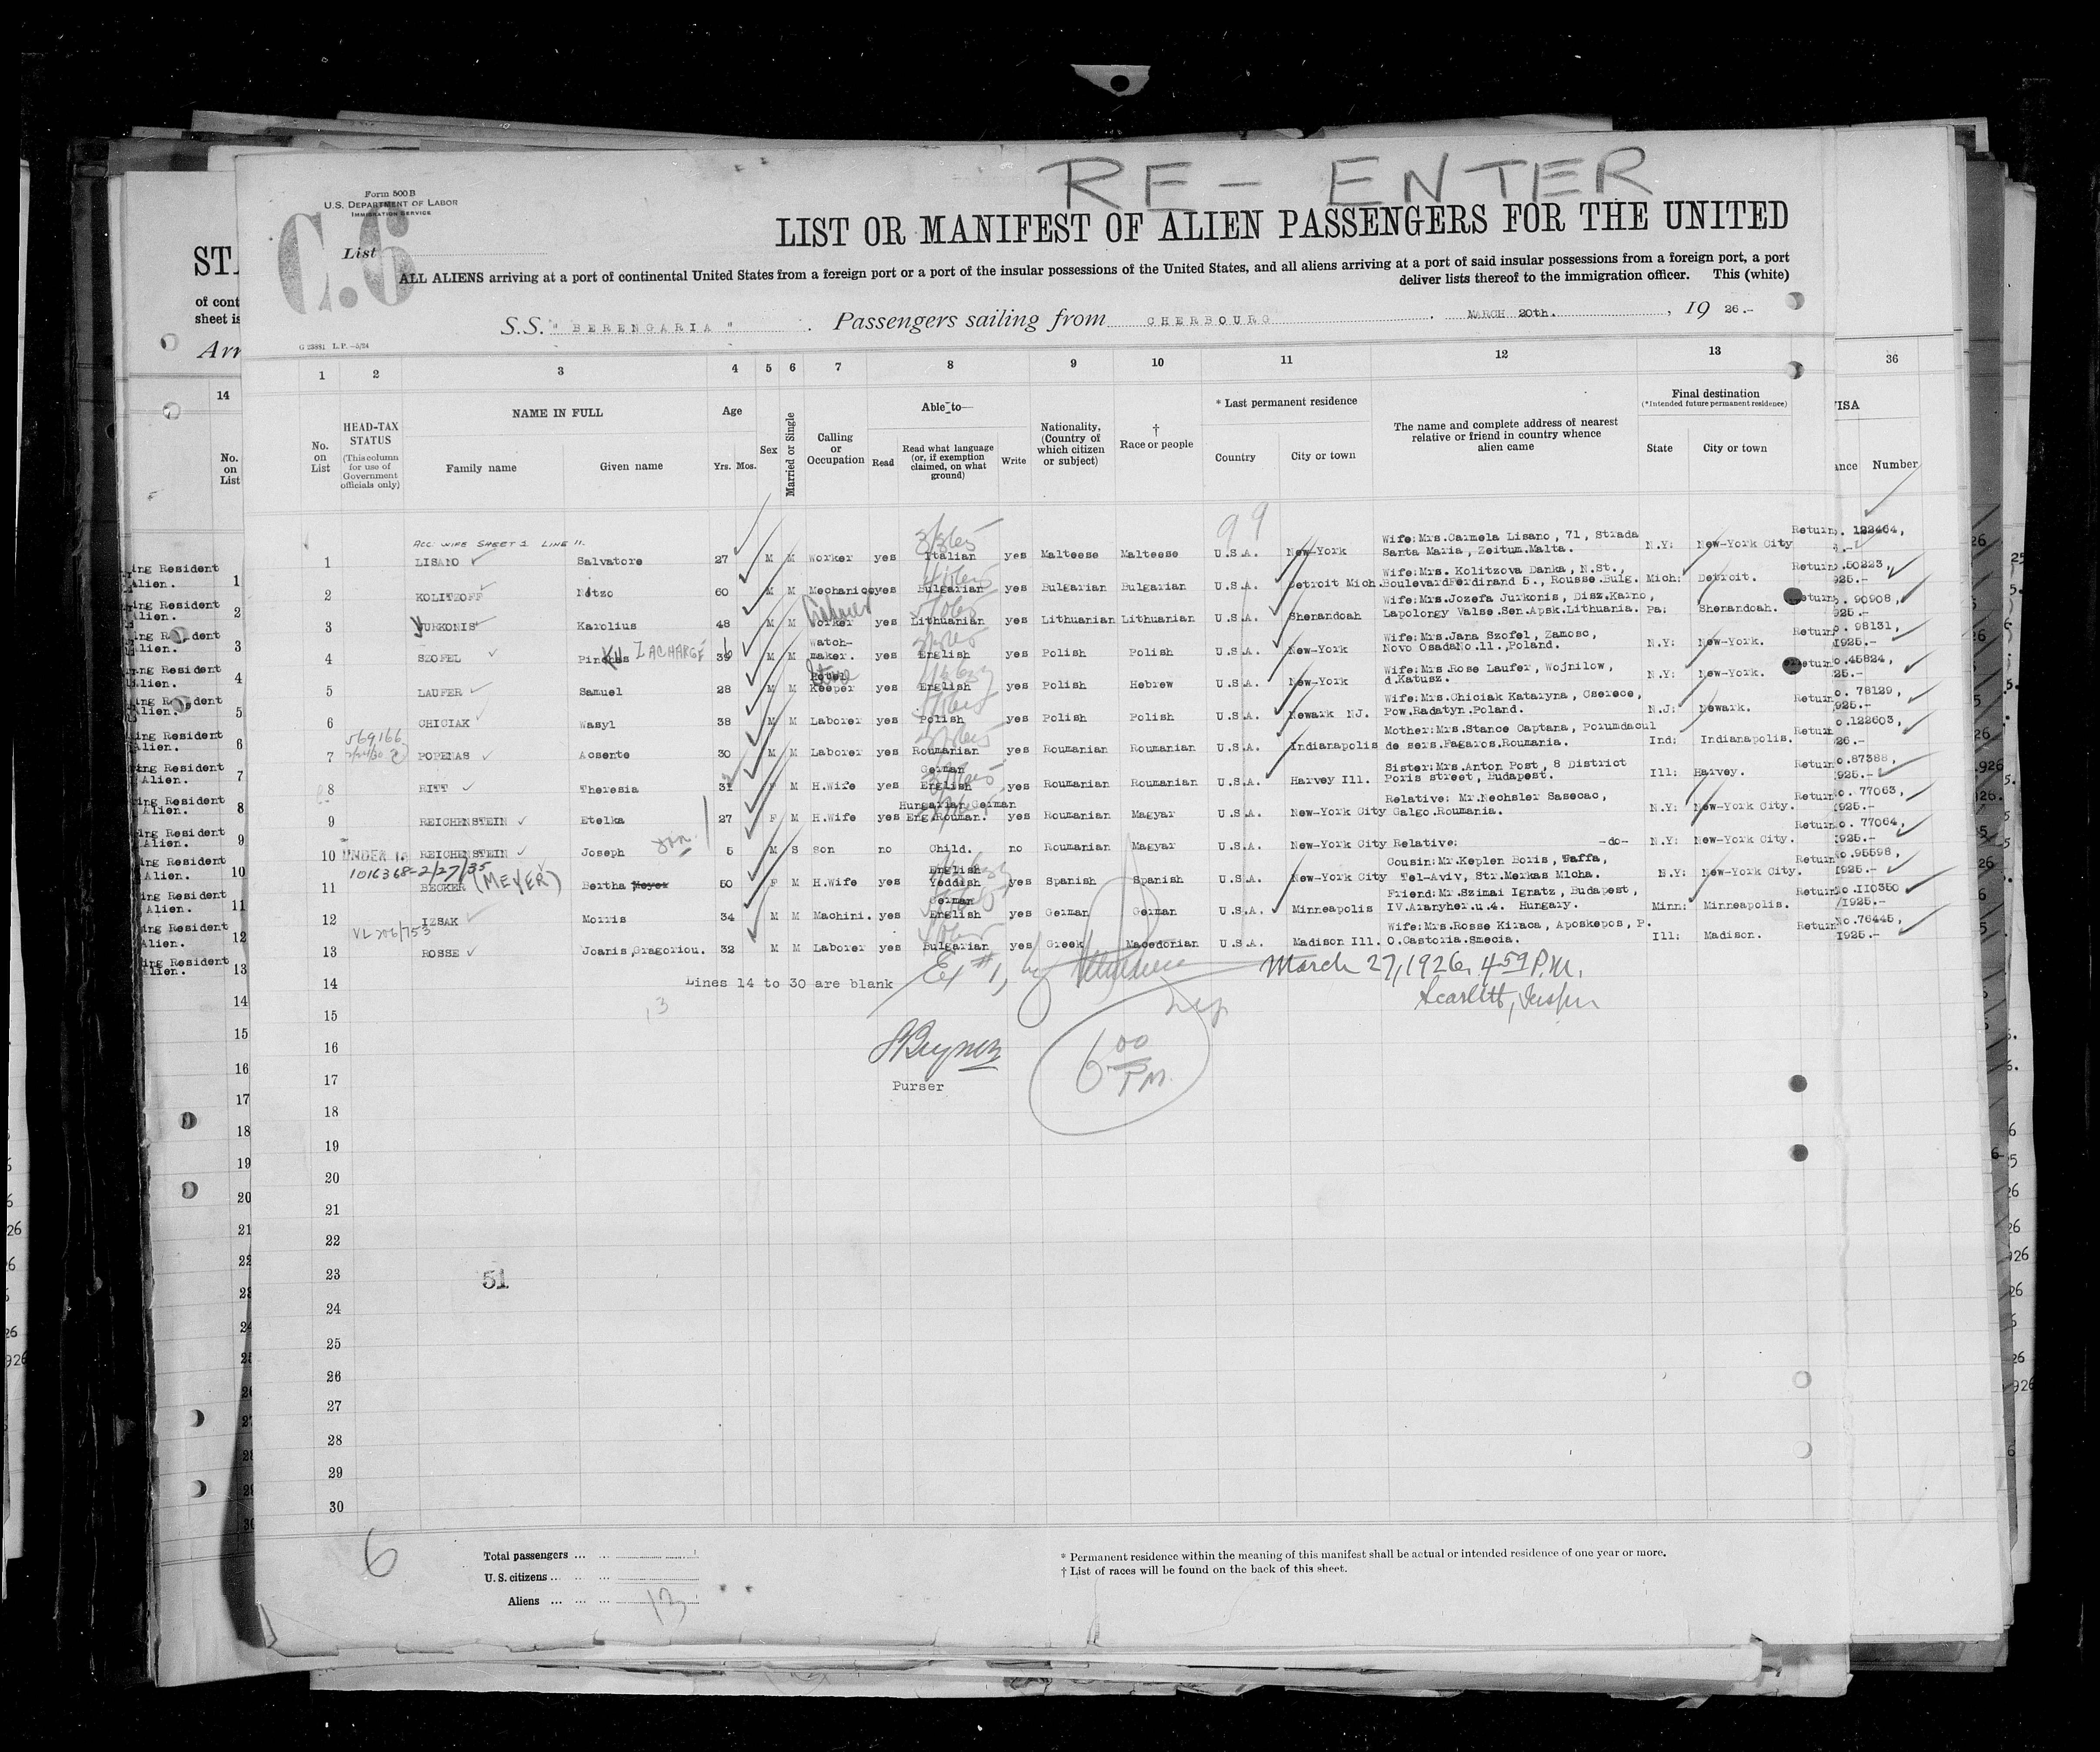 RE- ENTER
Form 500 B
U.S. DEPARTMENT OF LABOR
IMMIGRATION SERVICE
C.6
List
LIST OR MANIFEST OF ALIEN PASSENGERS FOR THE UNITED
ALL ALIENS arriving at a port of continental United States from a foreign port or a port of the insular possessions of the United States, and all aliens arriving at a port of said insular possessions from a foreign port, a port
deliver lists thereof to the immigration officer. This (white)
S.S. " BERENGARIA " . Passengers sailing from CHERBOURG , MARCH 20th. , 19 26.-
G 23881 L.P.-5/24
1 2 3 4 5 6 7 8 9 10 11 12 13 36
No. on List
HEAD-TAX STATUS (This column for use of Government officials only)
NAME IN FULL
Family name Given name
Age
Yrs. Mos.
Sex
Married or Single
Calling or Occupation
Able to—
Read
Read what language (or, if exemption claimed, on what ground)
Write
Nationality, (Country of which citizen or subject)
† Race or people
* Last permanent residence
Country City or town
The name and complete address of nearest relative or friend in country whence alien came
Final destination
(*Intended future permanent residence)
State City or town
Number
99
ACC. WIFE SHEET 1 LINE 11.
1 LISANO Salvatore 27 M M Worker yes Italian yes Malteese Malteese U.S.A. New-York Wife:Mrs.Carmela Lisano, 71, Strada Santa Maria, Zeitum.Malta. N.Y: New-York City Return. 122464,
2 KOLITZOFF Notzo 60 M M Mechanic yes Bulgarian yes Bulgarian Bulgarian U.S.A. Detroit Mich. Wife:Mrs. Kolitzova Danka, N.St., BoulevardFerdinand 5., Rousse.Bulg. Mich: Detroit. Return .50223, 925.-
3 JURKONIS Karolius 48 M M Worker yes Lithuanian yes Lithuanian Lithuanian U.S.A. Shenandoah Wife:Mrs.Jozefa Jurkonis, Disz.Karno, Lapolongy Valse.Sen.Apsk.Lithuania. Pa: Shenandoah. Return . 90908, 925.-
4 SZOFEL ZACHARGE 39 M M Watch-maker. yes English yes Polish Polish U.S.A. New-York Wife:Mrs.Jana Szofel, Zamosc, Novo OsadaNo.11.,Poland. N.Y: New-York. Return o. 98131, 1925.-
5 LAUFER Samuel 28 M M Hotel Keeper yes English yes Polish Hebrew U.S.A. New-York Wife:Mrs.Rose Laufer, Wojnilow, d.Katusz. N.Y: New-York. Return o.45824, 25.-
6 CHICIAK Wasyl 38 M M Laborer yes Polish yes Polish Polish U.S.A. Newark NJ. Wife:Mrs.Chiciak Kataryna, Cserece, Pow.Radatyn.Poland. N.J: Newark. Return o. 78129, 925.-
569166
7 POPENAS Acsente 30 M M Laborer yes Roumanian yes Roumanian Roumanian U.S.A. Indianapolis Mother:Mrs.Stance Captana, Porumdacul de sers.Fagaros.Roumania. Ind: Indianapolis. Return o.122603, 26.-
8 RITT Theresia 31 F M H.Wife yes German English yes Roumanian Roumanian U.S.A. Harvey Ill. Sister:Mrs.Anton Post, 8 District Poris street, Budapest. Ill: Harvey. Return o.87388, 925.-
9 REICHENSTEIN Etelka 27 F M H.Wife yes Hungarian German Eng.Rouman. yes Roumanian Magyar U.S.A. New-York City Relative: Mr.Nechsler Sasecac, Galgo.Roumania. N.Y: New-York City. Return No. 77063, 1925.-
10 UNDER 16 REICHENSTEIN Joseph son 5 M S son no Child. no Roumanian Magyar U.S.A. New-York City Relative: -do- N.Y: New-York City. Return o. 77064, 925.-
1016368-2/27/35
11 BECKER (MEYER) Bertha Meyer 50 F M H.Wife yes English Yeddish yes Spanish Spanish U.S.A. New-York City Cousin:Mr.Keplen Boris, Yaffa, Tel-Aviv, Str.Merkas Mloha. N.Y: New-York City. Return No.95598, 1925.-
12 IZSAK Morris 34 M M Machini. yes German English yes German German U.S.A. Minneapolis Friend:Mr.Szimai Ignatz, Budapest, IV.Aranyher.u.4. Hungary. Minn: Minneapolis. Return No.110350 /1925.-
VL 206/753
13 ROSSE Joanis,Gragoriou. 32 M M Laborer yes Bulgarian yes Greek Macedonian U.S.A. Madison Ill. Wife:Mrs.Rosse Kiraca, Aposkepos, P.O.Castoria.Smecia. Ill: Madison. Return No.76445, 1925.-
14 Lines 14 to 30 are blank Ex #1, by March 27, 1926, 4 59 P.M.
13
15
16
17 Purser 6 00 P.M.
18
19
20
21
22
23 51
24
25
26
27
28
29
30
6
Total passengers
U.S. citizens
Aliens 13
* Permanent residence within the meaning of this manifest shall be actual or intended residence of one year or more.
† List of races will be found on the back of this sheet.